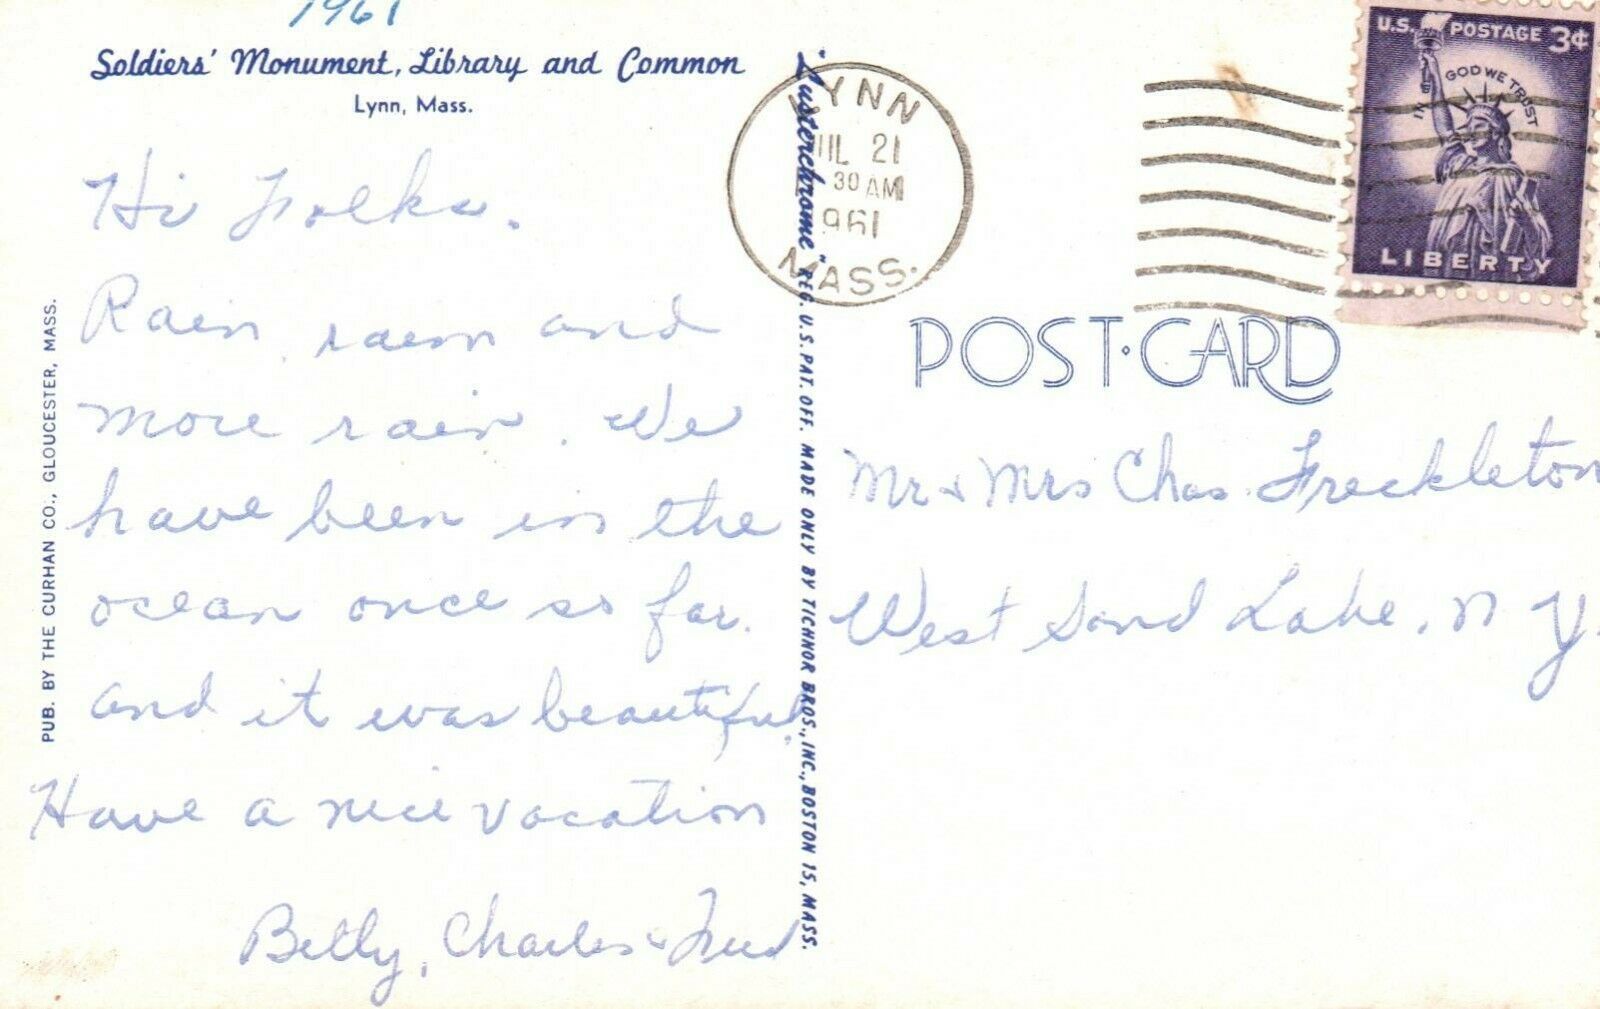 1961
Soldiers' Monument, Library and Common
Lynn, Mass.
Hi Folks.
Rain, rain and
more rain. We
have been in the
ocean once so far.
and it was beautiful.
Have a nice vacation
Betty, Charles & Fred
PUB. BY THE CURHAN CO., GLOUCESTER, MASS.
"Lusterchrome" REG. U.S. PAT. OFF. MADE ONLY BY TICHNOR BROS., INC., BOSTON 15, MASS.
LYNN
JUL 21
30 AM
1961
MASS.
U.S. POSTAGE 3¢
IN GOD WE TRUST
LIBERTY
POST·CARD
Mr & Mrs Chas. Freckleton
West Sand Lake, N Y.